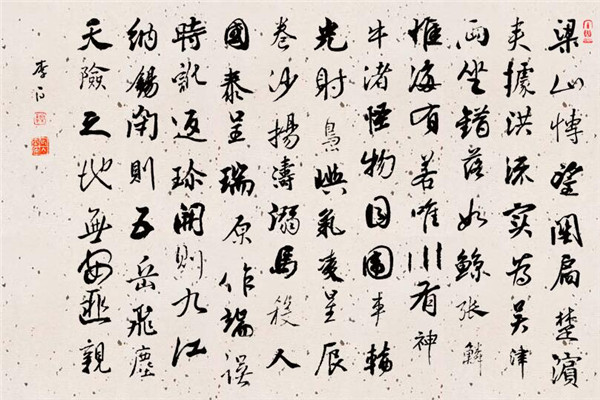 梁山博望関扃楚濱
夾據洪流实為吴津
两坐錯落如鯨張鱗
惟海有若唯川有神
牛渚怪物目围車輪
光射島嶼氣凌星辰
卷沙揚濤溺馬殺人
國泰呈瑞原作端误
時訛返珍開則九江
納錫闭則五岳飛塵
天險之地無匪親
李白